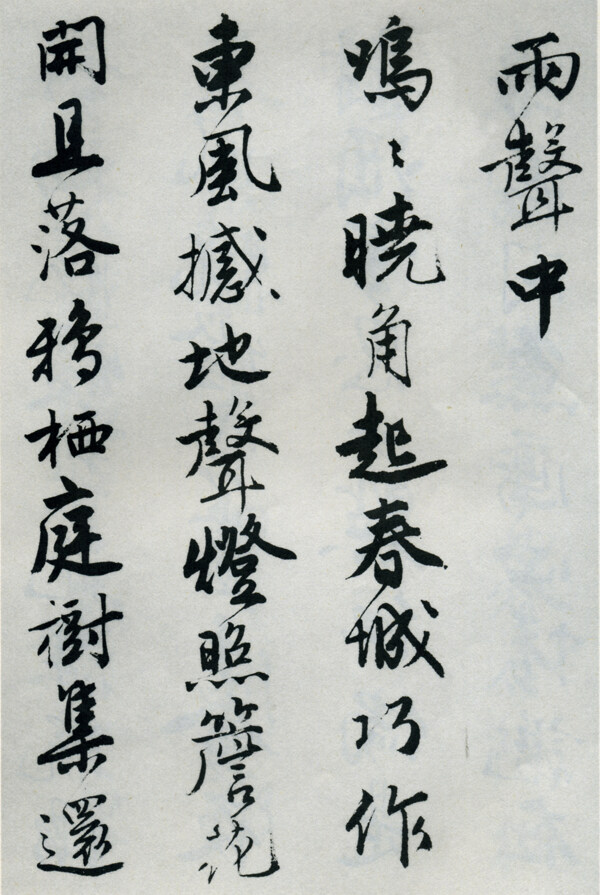 雨聲中
嗚〻曉角起春城巧作
東風撼地聲燈照簷花
開且落鴉栖庭樹集還